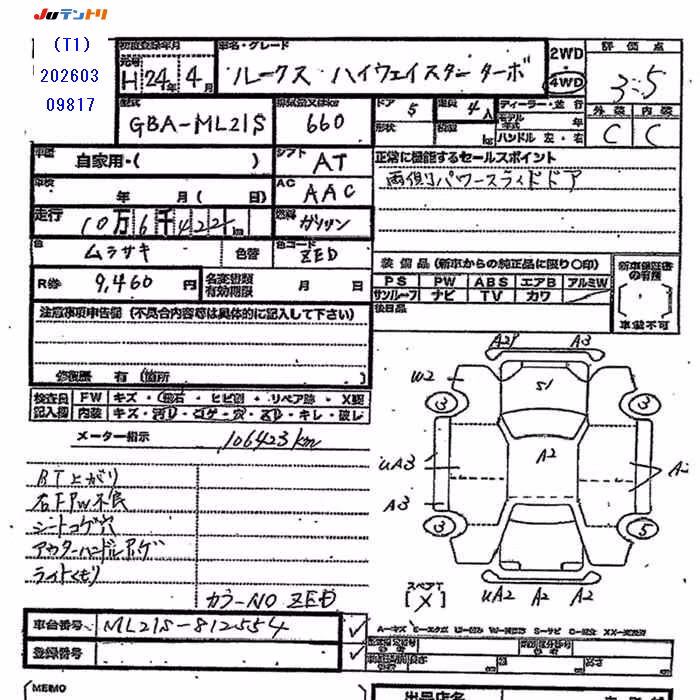 Juテントリ
(T1)
202603
09817
初度登録年月
元号
H 24年 4月
車名・グレード
ルークス ハイウェイスター ターボ
2WD
4WD
評価点
3.5
外装 内装
C C
型式
GBA-ML21S
660
ドア 5
形状
定員 4人
積載 kg
ディーラー・並行
モデル年式 年
ハンドル 左・右
車歴
自家用・( )
シフト
AT
車検
年 月( 日)
AC
AAC
走行
10万6千422km
燃料
ガソリン
正常に機能するセールスポイント
両側パワースライドドア
色
ムラサキ
色替
色コード
ZED
R券
9,460円
名変書類有効期限
月 日
装備品(新車からの純正品に限り〇印)
PS PW ABS エアB アルミW
サンルーフ ナビ TV カワ
後日品
新車保証書の有無
車載不可
注意事項申告欄(不具合内容等は具体的に記入して下さい)
修復歴 有(箇所
検査員記入欄
FW キズ・飛石・ヒビ割・リペア跡・X要
内装 キズ・汚レ・コゲ・穴・スレ・キレ・破レ
メーター指示 106423km
BT上がり
右FPW不良
シートコゲ穴
アウターハンドルハゲ
ライトくもり
カラーNO ZED
A2 A3
W2
S1
3 3
A2
UA3
A3
A2
3 5
スペアT
[X]
UA2 A2 A2
車台番号
ML21S-812554
登録番号
A-キズ E-エクボ U-凹み W-補修跡 S-サビ C-腐食 XX-交換済
MEMO
出品店名